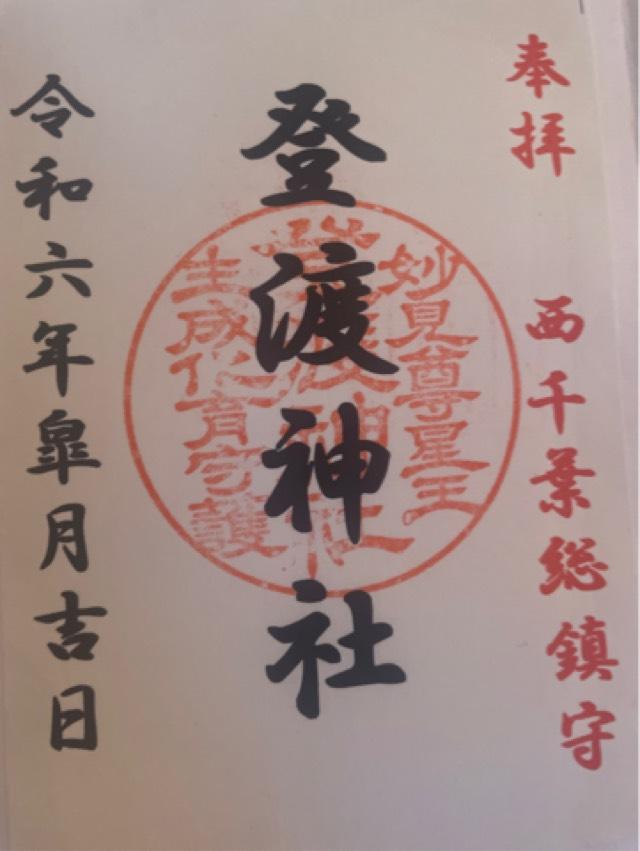 奉拝
西千葉総鎮守
登渡神社
妙見尊星王
登渡神社
生成化育守護
令和六年皐月吉日